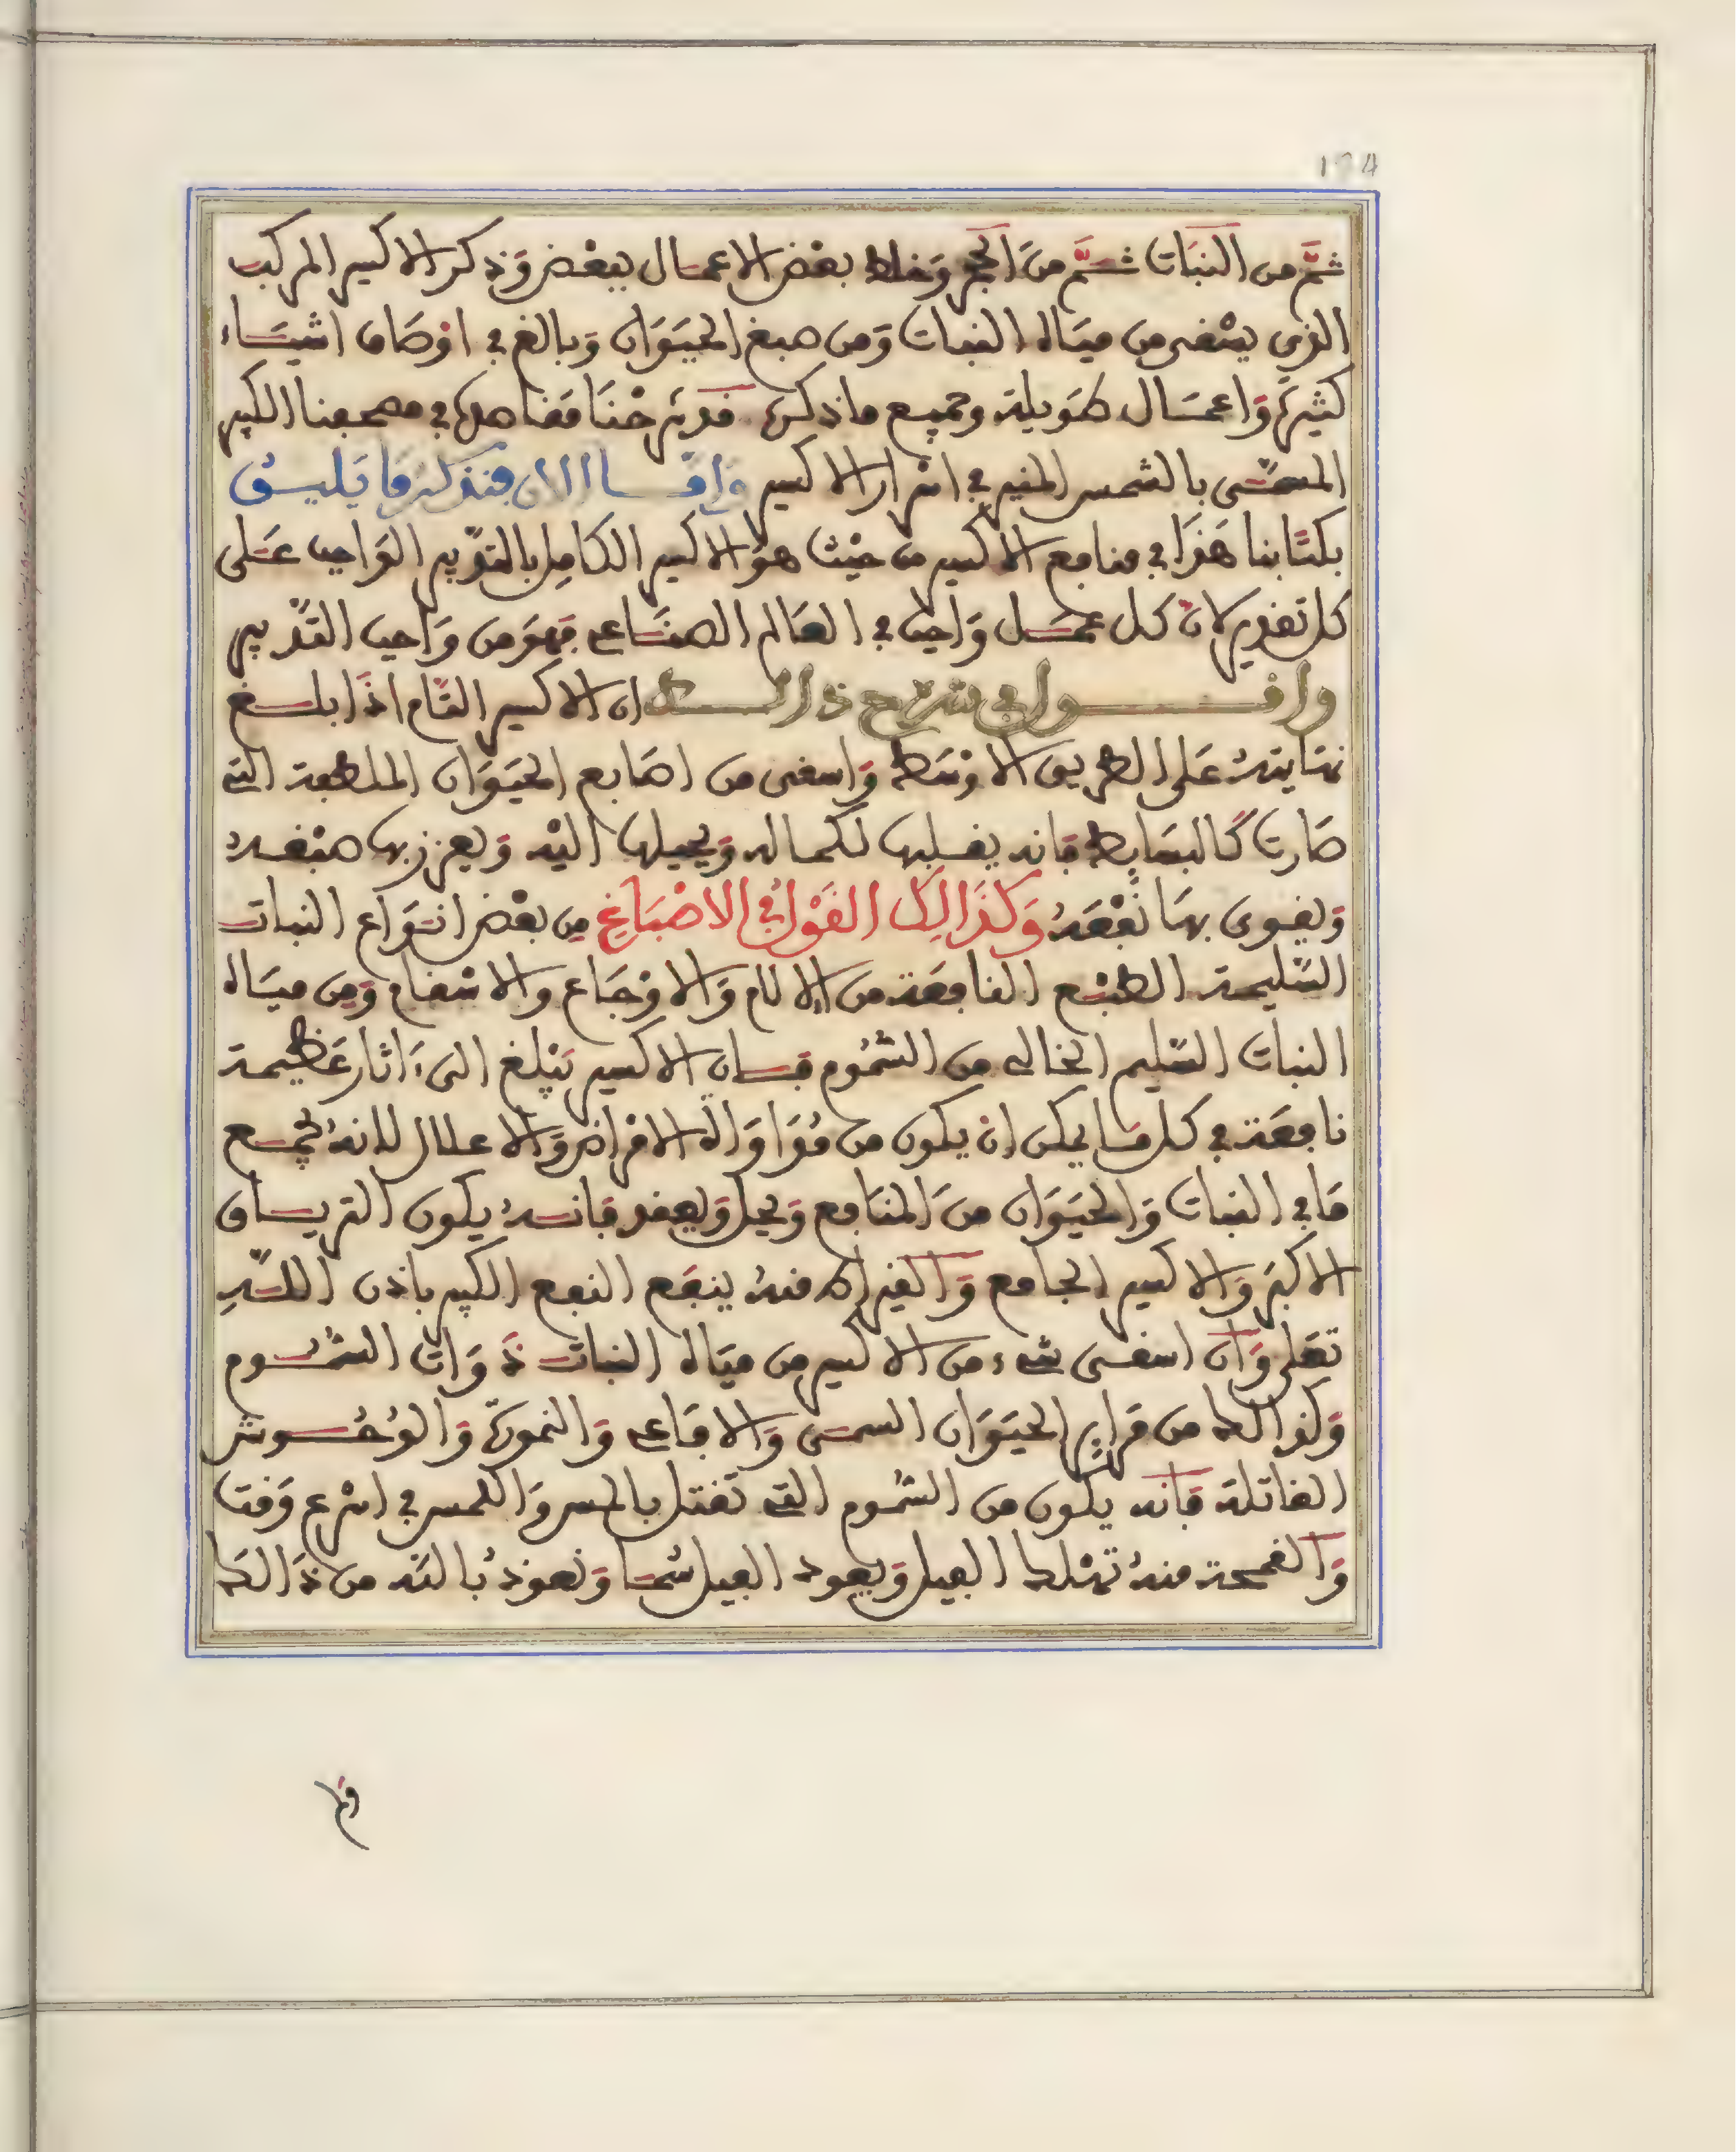 174
ثمَّ من النبات ثمَّ من الحجر وخلط بعض الاعمال ببعض وذكر الاكسير المركب
الذي يسقى من مياه النبات ومن صبغ الحيوان وبالغ في اوصاف اشياء
كثيرة واعمال طويلة وجميع ما ذكره قد شرحنا مقاصده في مصحفنا الكبير
المسمّى بالشمس المنير في اسرار الاكسير واما الان فنذكر ما يليق
بكتابنا هذا في منافع الاكسير من حيث هو الاكسير الكامل بالتدبير الواجب على
كل تقدير لان كل عمل واجب في العالم الصناعي فهو من واجب التدبير
واقول في شرح ذالك ان الاكسير التام اذا بلغ
نهايته على الطريق الاوسط واسقى من اصابع الحيوان الملطفة التي
صارت كالبسايط فانه يقلبها لكماله ويحيلها اليه ويعزز بها صبغه
ويقوى بها نفعه وكذالك القول في الاصباغ من بعض انواع النبات
السليمة الطبع النافعة من الالام والاوجاع والاسقام ومن مياه
النبات السليم الخالى من السموم فان الاكسير يبلغ الى ءاثار عظيمة
نافعة في كل ما يمكن ان يكون من مداواة الامراض والاعلال لانه يجمع
ما في النبات والحيوان من المنافع ويحل ويعقد فانه يكون الترياق
الاكبر والاكسير الجامع والقيراط منه ينفع النفع الكبير باذن الله
تعلى وان اسقى شيء من الاكسير من مياه النبات ذوات السموم
وكذالك من مراير الحيوان السمى والافاعي والنمورة والوحوش
القاتلة فانه يكون من السموم التي تقتل بالحس واللمس في اسرع وقت
والقمحة منه تهلك الفيل ويعود الفيل سُمّا ونعوذ بالله من ذالك